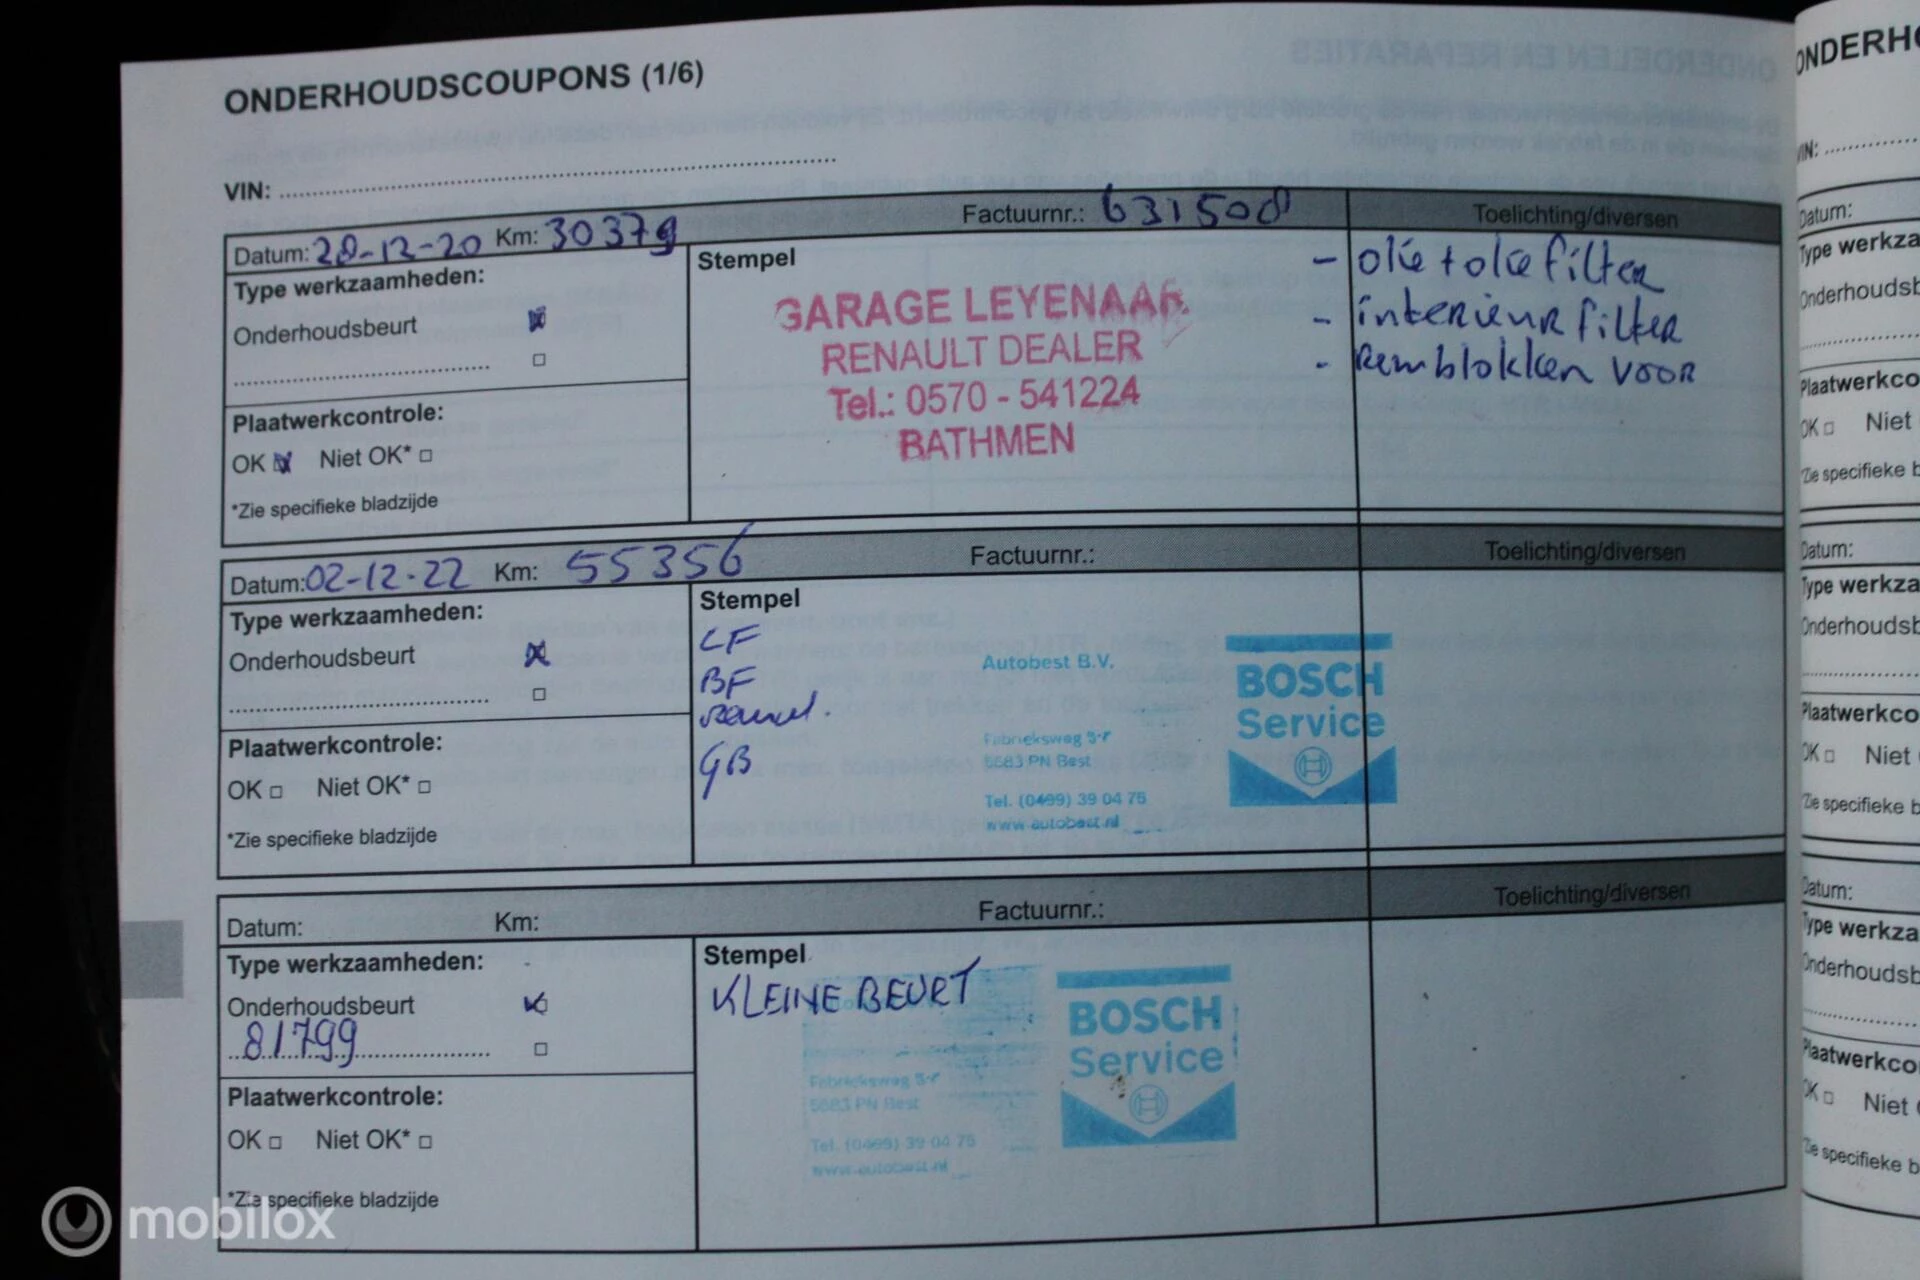 ONDERHOUDSCOUPONS (1/6)
VIN:
Datum: 28-12-20 Km: 30379 Factuurnr.: 631508 Toelichting/diversen
Type werkzaamheden:
Onderhoudsbeurt
Plaatwerkcontrole:
OK Niet OK*
*Zie specifieke bladzijde
Stempel
GARAGE LEYENAAR
RENAULT DEALER
Tel.: 0570 - 541224
BATHMEN
- olie + oliefilter
- interieurfilter
- Remblokken voor
Datum: 02-12-22 Km: 55356 Factuurnr.: Toelichting/diversen
Type werkzaamheden:
Onderhoudsbeurt
Plaatwerkcontrole:
OK Niet OK*
*Zie specifieke bladzijde
Stempel
LF
BF
GB
Autobest B.V.
Fabrieksweg 5-7
5683 PN Best
Tel. (0499) 39 04 75
www.autobest.nl
BOSCH
Service
Datum: Km: Factuurnr.: Toelichting/diversen
Type werkzaamheden:
Onderhoudsbeurt
81799
Plaatwerkcontrole:
OK Niet OK*
*Zie specifieke bladzijde
Stempel
KLEINE BEURT
Fabrieksweg 5-7
5683 PN Best
Tel. (0499) 39 04 75
www.autobest.nl
BOSCH
Service
ONDERHO
VIN:
Datum:
Type werkza
Onderhoudsb
Plaatwerkco
OK Niet
*Zie specifieke b
Datum:
Type werkza
Onderhoudsb
Plaatwerkco
OK Niet
*Zie specifieke b
Datum:
Type werkza
Onderhoudsb
Plaatwerkco
OK Niet
*Zie specifieke b
mobilox